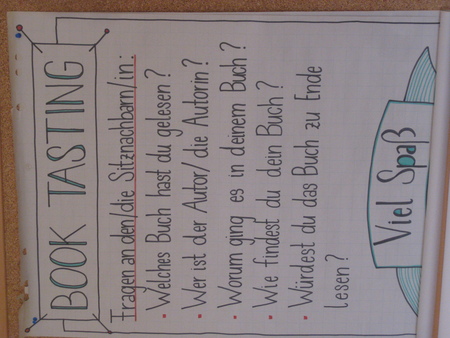 BOOK TASTING
Fragen an den/die Sitznachbarn/in:
• Welches Buch hast du gelesen?
• Wer ist der Autor/ die Autorin?
• Worum ging es in deinem Buch?
• Wie findest du dein Buch?
• Würdest du das Buch zu Ende
lesen?
Viel Spaß